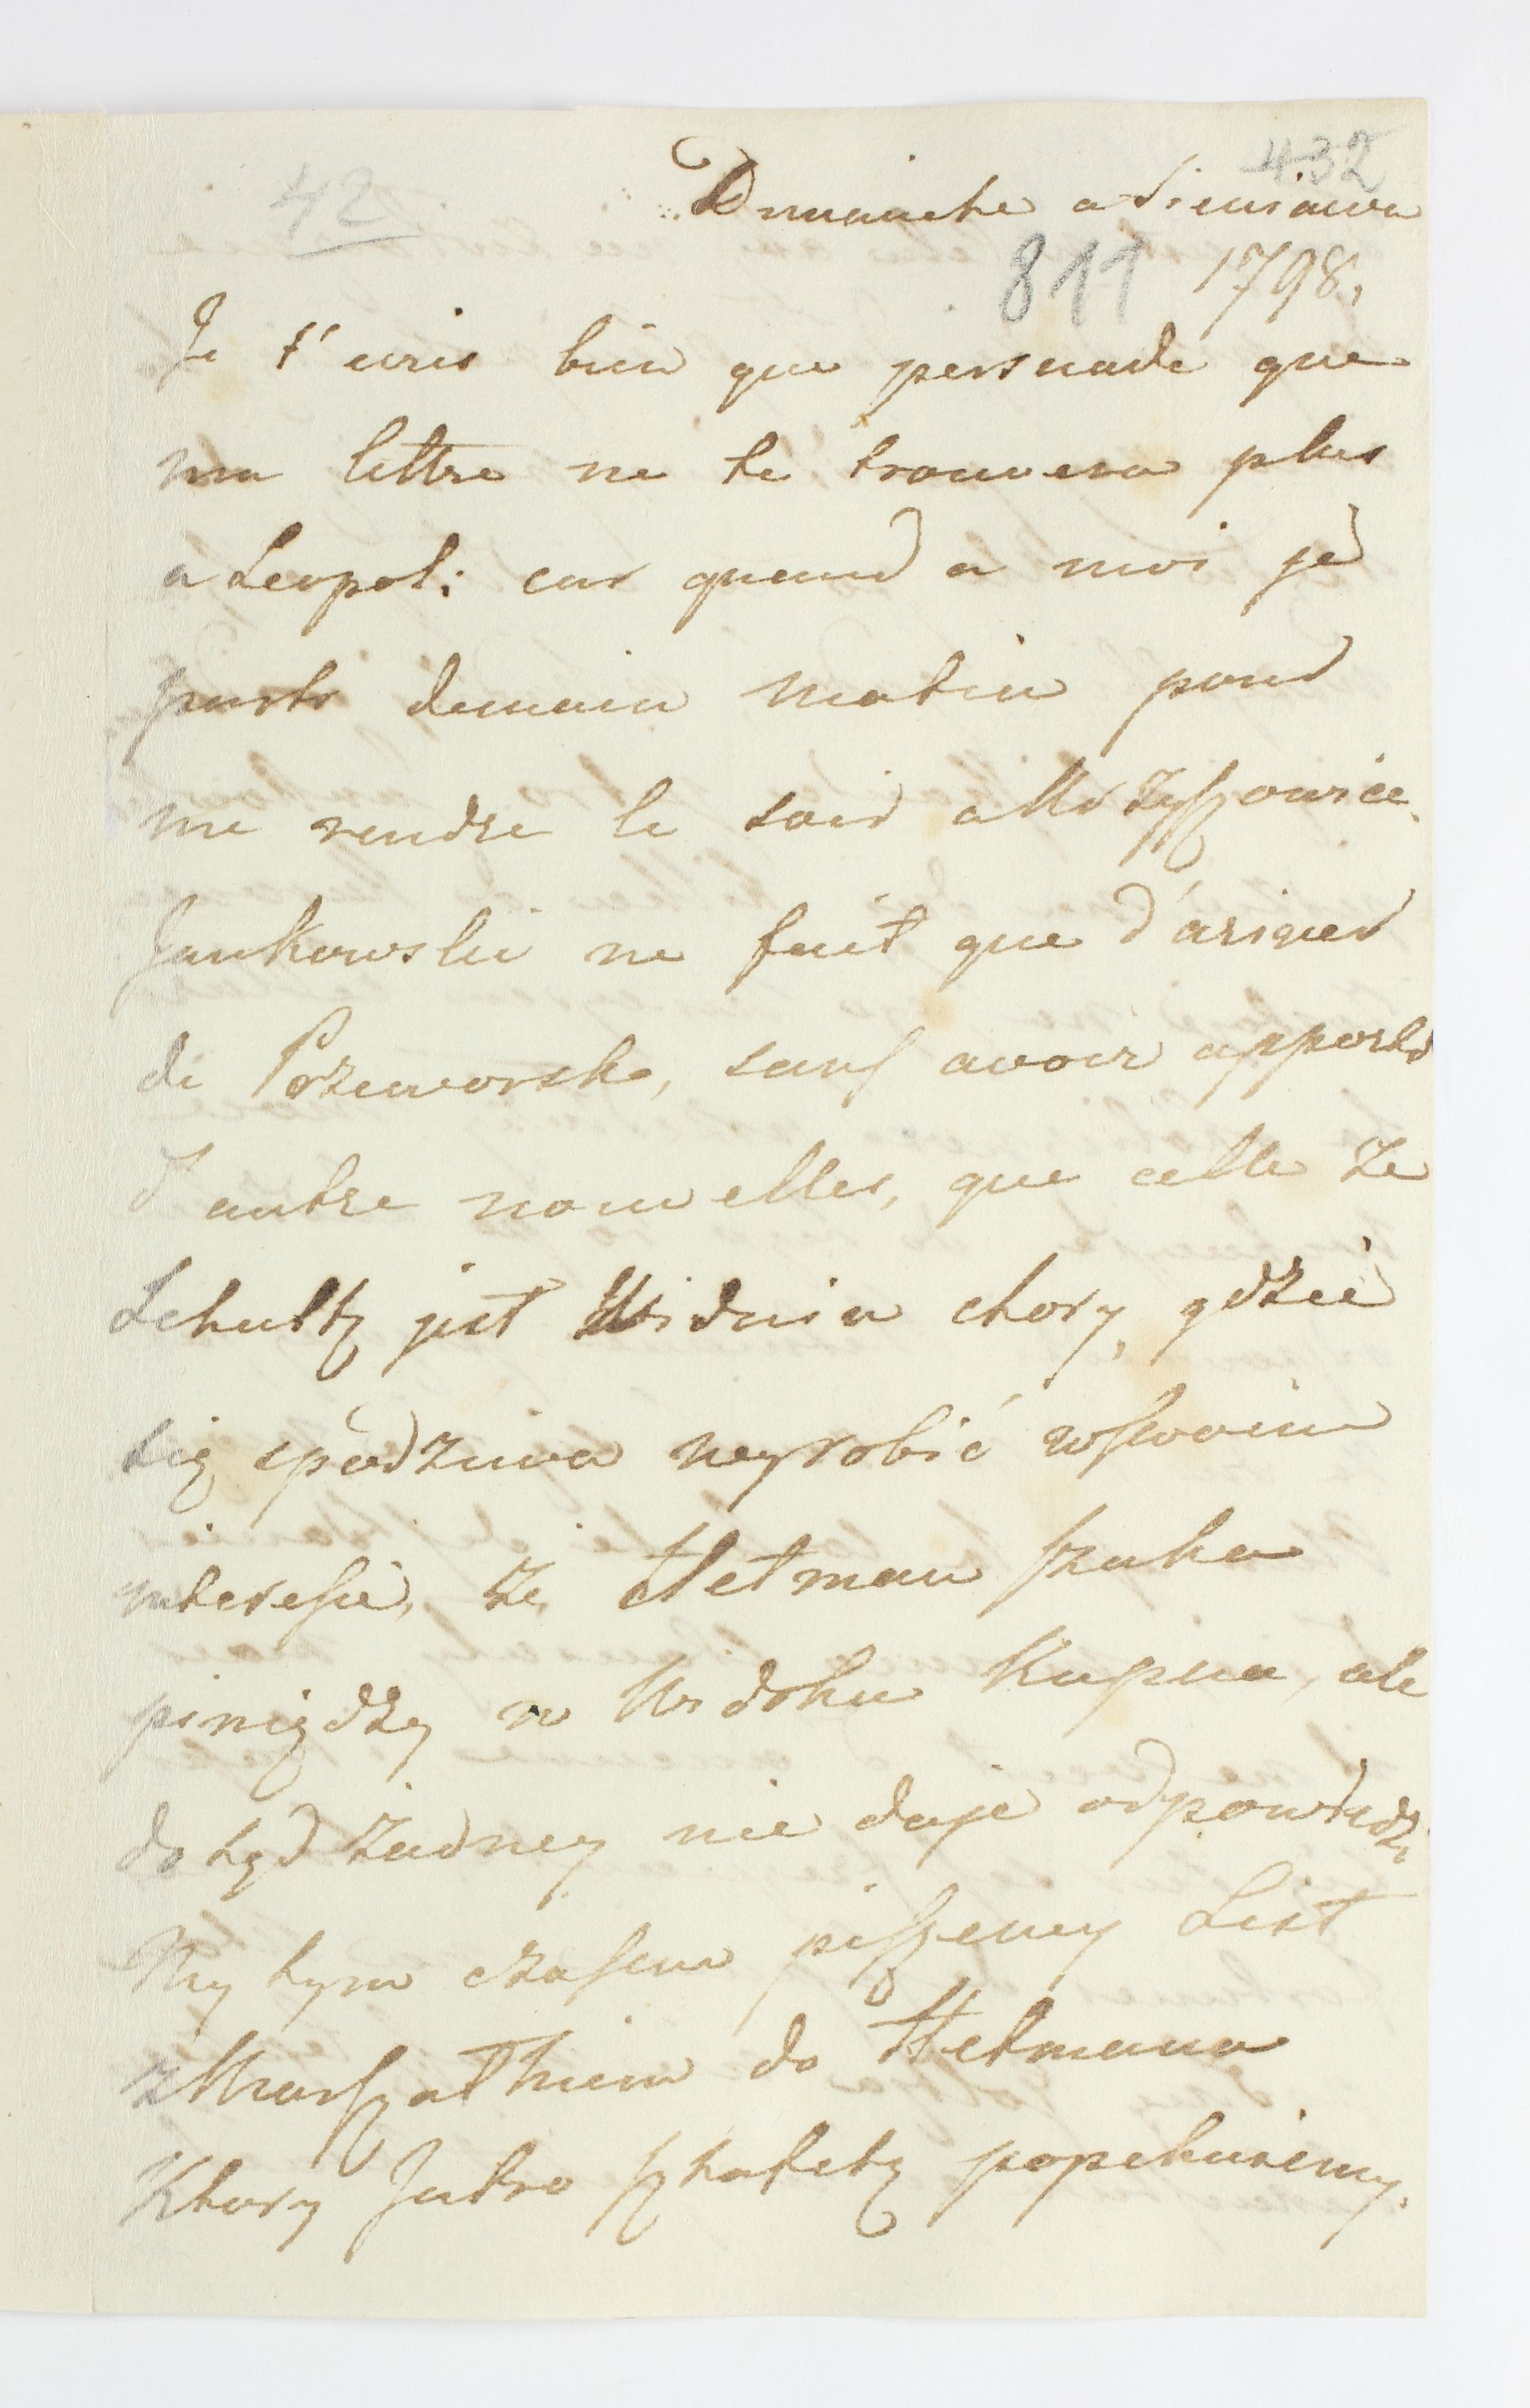 432
42
Dimanche a Sieniawa
811 1798.
Je t'ecris bien que persuade que
ma lettre ne te trouvera plus
a Leopol: car quand a moi je
parts demain matin pour
me rendre le soir a Mrzyszowice.
Jankowski ne fait que d'ariver
de Przeworsk, sans avoir apporté
d autre nouvelles, que celle że
Schultz jest Widniu chory, gdzie
się spodziwa wyrobić w swoim
interesie, że Hetman szuka
piniędzy w Widniu Kupca, ale
dotąd żadney nie daje odpowiedzi.
My tym czasem piszemy List
z Marszałkiem do Hetmana
Ktory Jutro sztafetą popchniemy.